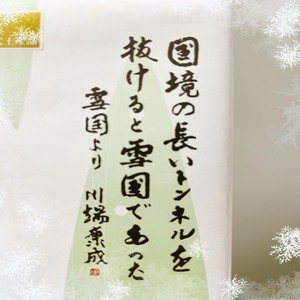 国境の長いトンネルを
抜けると雪国であった
雪国より 川端康成